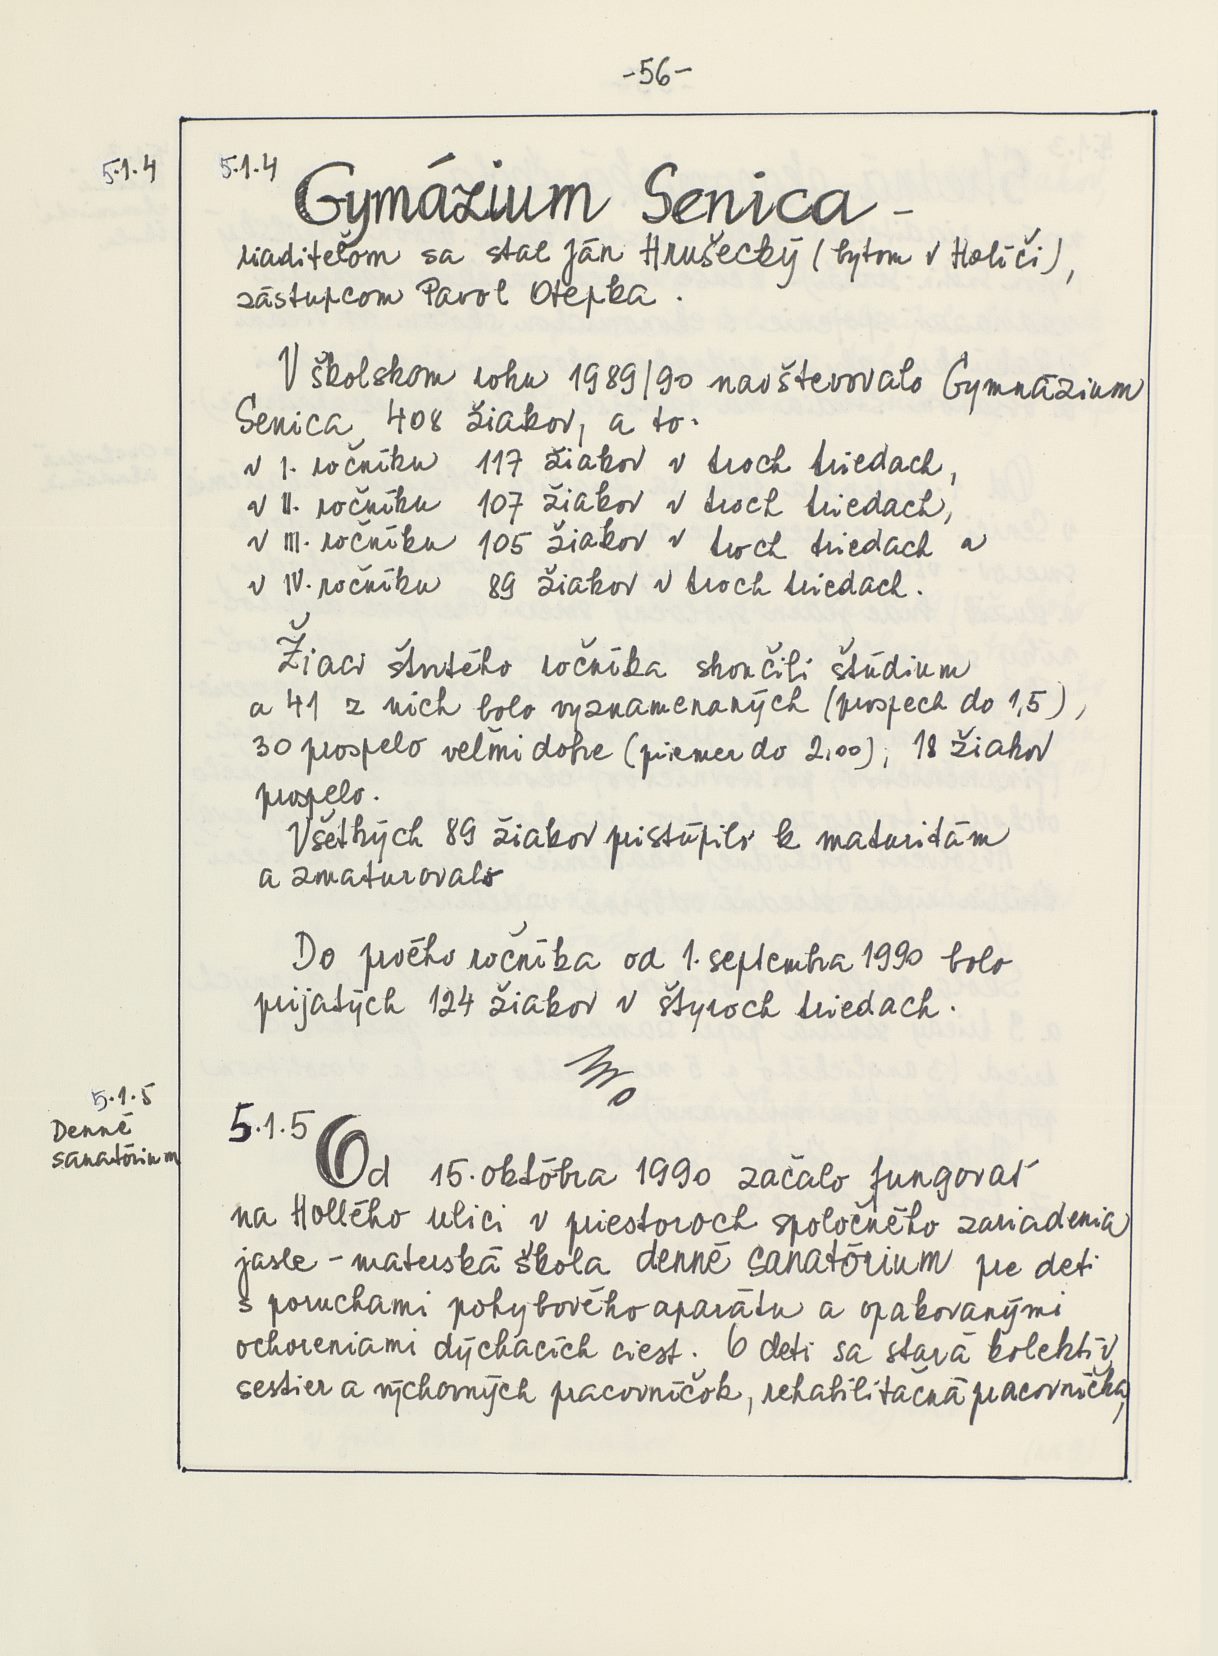 -56-
5.1.4
5.1.4 Gymázium Senica –
riaditeľom sa stal Ján Hrušecký (bytom v Holíči),
zástupcom Pavol Otepka.
V školskom roku 1989/90 navštevovalo Gymnázium
Senica 408 žiakov, a to.
v I. ročníku 117 žiakov v troch triedach,
v II. ročníku 107 žiakov v troch triedach,
v III. ročníku 105 žiakov v troch triedach a
v IV. ročníku 89 žiakov v troch triedach.
Žiaci štvrtého ročníka skončili štúdium
a 41 z nich bolo vyznamenaných (prospech do 1,5),
30 prospelo veľmi dobre (priemer do 2,00), 18 žiakov
prospelo.
Všetkých 89 žiakov pristúpilo k maturitám
a zmaturovalo
Do prvého ročníka od 1. septembra 1990 bolo
prijatých 124 žiakov v štyroch triedach.
5.1.5
Denné
sanatórium
5.1.5 Od 15. októbra 1990 začalo fungovať
na Hollého ulici v priestoroch spoločného zariadenia
jasle – materská škola denné sanatórium pre deti
s poruchami pohybového aparátu a opakovanými
ochoreniami dýchacích ciest. O deti sa stará kolektív
sestier a výchovných pracovníčok, rehabilitačná pracovníčka,